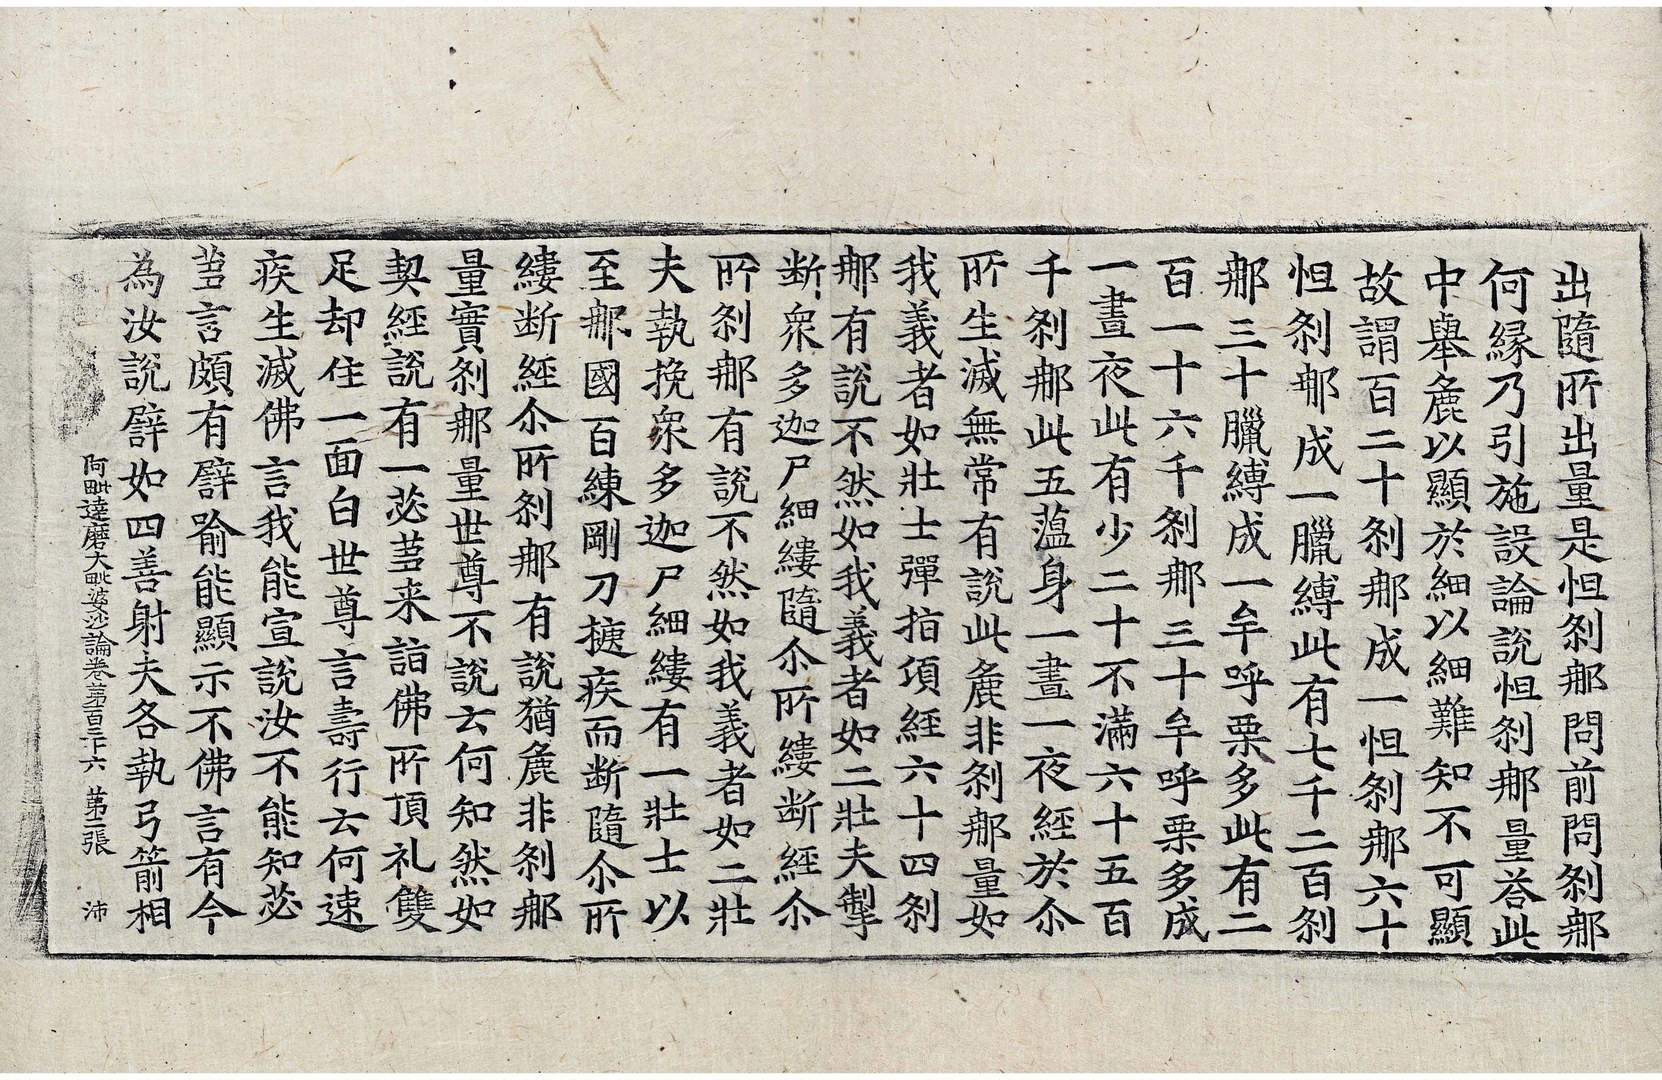 出隨所出量是怛刹那問前問刹那
何縁乃引施設論說怛刹那量荅此
中舉麁以顯於細以細難知不可顯
故謂百二十刹那成一怛刹那六十
怛刹那成一臘縛此有七千二百刹
那三十臘縛成一牟呼栗多此有二
百一十六千刹那三十牟呼栗多成
一晝夜此有少二十不滿六十五百
千刹那此五蕰身一晝一夜經於尒
所生滅無常有說此麁非刹那量如
我義者如壯士彈指項經六十四刹
那有說不然如我義者如二壯夫掣
断衆多迦尸細縷隨尒所縷断經尒
所刹那有說不然如我義者如二壯
夫執挽衆多迦尸細縷有一壯士以
至那國百練剛刀揵疾而断隨尒所
縷断經尒所刹那有說猶麁非刹那
量實刹那量世尊不說云何知然如
契經說有一苾芻来詣佛所頂礼雙
足却住一面白世尊言壽行云何速
疾生滅佛言我能宣說汝不能知苾
芻言頗有譬喻能顯示不佛言有今
為汝說譬如四善射夫各執弓箭相
阿毗達磨大毗婆沙論卷第百三十六 第二張 沛